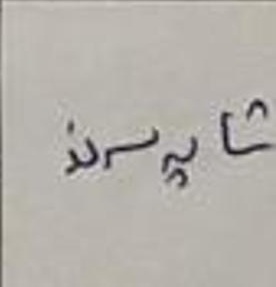 شاپرسند